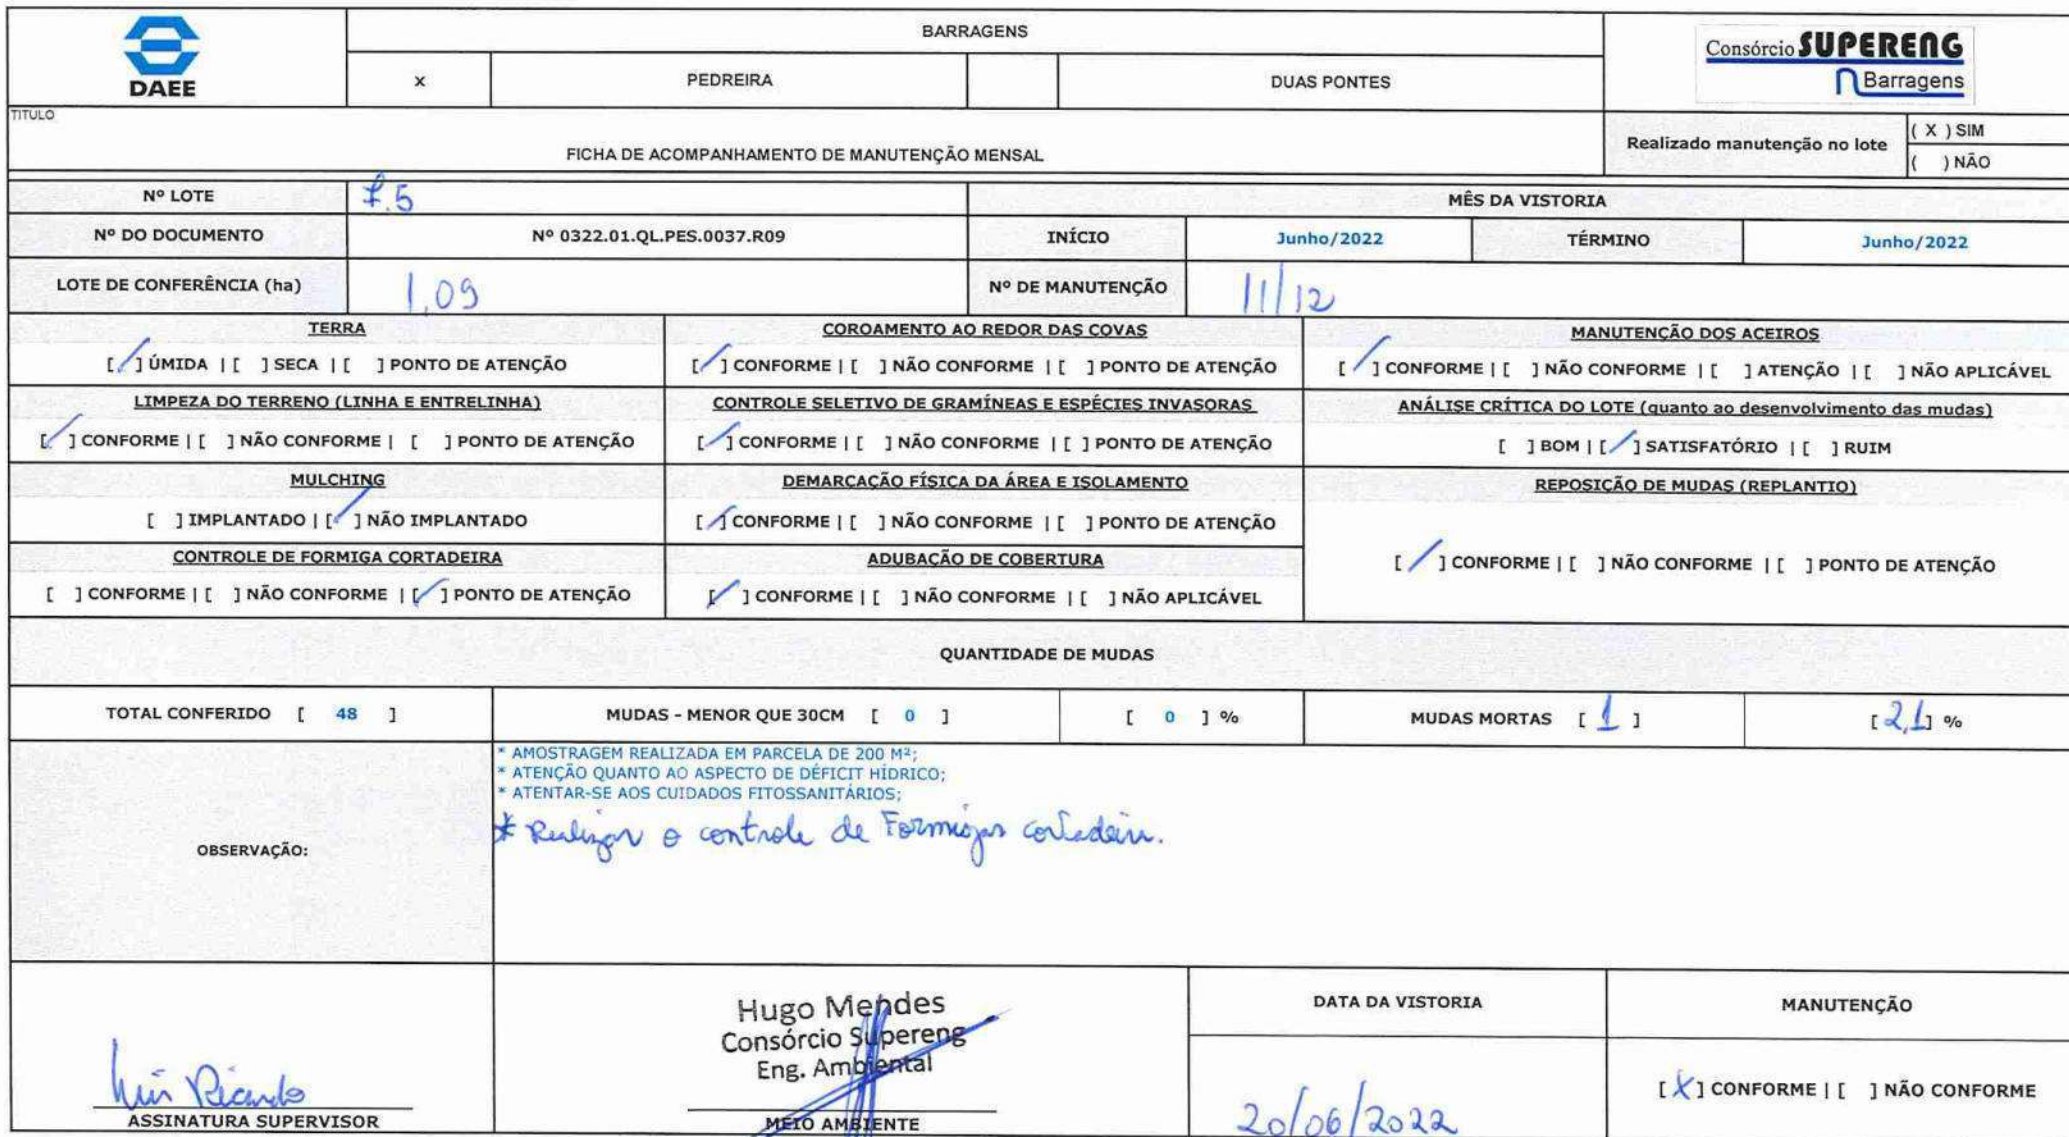 DAEE
BARRAGENS
x PEDREIRA DUAS PONTES
Consórcio SUPERENG
Barragens
TITULO
FICHA DE ACOMPANHAMENTO DE MANUTENÇÃO MENSAL
Realizado manutenção no lote
( X ) SIM
( ) NÃO
Nº LOTE 7.5
MÊS DA VISTORIA
Nº DO DOCUMENTO Nº 0322.01.QL.PES.0037.R09 INÍCIO Junho/2022 TÉRMINO Junho/2022
LOTE DE CONFERÊNCIA (ha) 1,09 Nº DE MANUTENÇÃO 11/12
TERRA
[/] ÚMIDA | [ ] SECA | [ ] PONTO DE ATENÇÃO
COROAMENTO AO REDOR DAS COVAS
[/] CONFORME | [ ] NÃO CONFORME | [ ] PONTO DE ATENÇÃO
MANUTENÇÃO DOS ACEIROS
[/] CONFORME | [ ] NÃO CONFORME | [ ] ATENÇÃO | [ ] NÃO APLICÁVEL
LIMPEZA DO TERRENO (LINHA E ENTRELINHA)
[/] CONFORME | [ ] NÃO CONFORME | [ ] PONTO DE ATENÇÃO
CONTROLE SELETIVO DE GRAMÍNEAS E ESPÉCIES INVASORAS
[/] CONFORME | [ ] NÃO CONFORME | [ ] PONTO DE ATENÇÃO
ANÁLISE CRÍTICA DO LOTE (quanto ao desenvolvimento das mudas)
[ ] BOM | [/] SATISFATÓRIO | [ ] RUIM
MULCHING
[ ] IMPLANTADO | [/] NÃO IMPLANTADO
DEMARCAÇÃO FÍSICA DA ÁREA E ISOLAMENTO
[/] CONFORME | [ ] NÃO CONFORME | [ ] PONTO DE ATENÇÃO
REPOSIÇÃO DE MUDAS (REPLANTIO)
[/] CONFORME | [ ] NÃO CONFORME | [ ] PONTO DE ATENÇÃO
CONTROLE DE FORMIGA CORTADEIRA
[ ] CONFORME | [ ] NÃO CONFORME | [/] PONTO DE ATENÇÃO
ADUBAÇÃO DE COBERTURA
[/] CONFORME | [ ] NÃO CONFORME | [ ] NÃO APLICÁVEL
QUANTIDADE DE MUDAS
TOTAL CONFERIDO [ 48 ] MUDAS - MENOR QUE 30CM [ 0 ] [ 0 ] % MUDAS MORTAS [ 1 ] [ 2,1 ] %
OBSERVAÇÃO:
* AMOSTRAGEM REALIZADA EM PARCELA DE 200 M²;
* ATENÇÃO QUANTO AO ASPECTO DE DÉFICIT HÍDRICO;
* ATENTAR-SE AOS CUIDADOS FITOSSANITÁRIOS;
* Realizar o controle de Formigas cortadeira.
Luis Ricardo
ASSINATURA SUPERVISOR
Hugo Mendes
Consórcio Supereng
Eng. Ambiental
MEIO AMBIENTE
DATA DA VISTORIA
20/06/2022
MANUTENÇÃO
[X] CONFORME | [ ] NÃO CONFORME